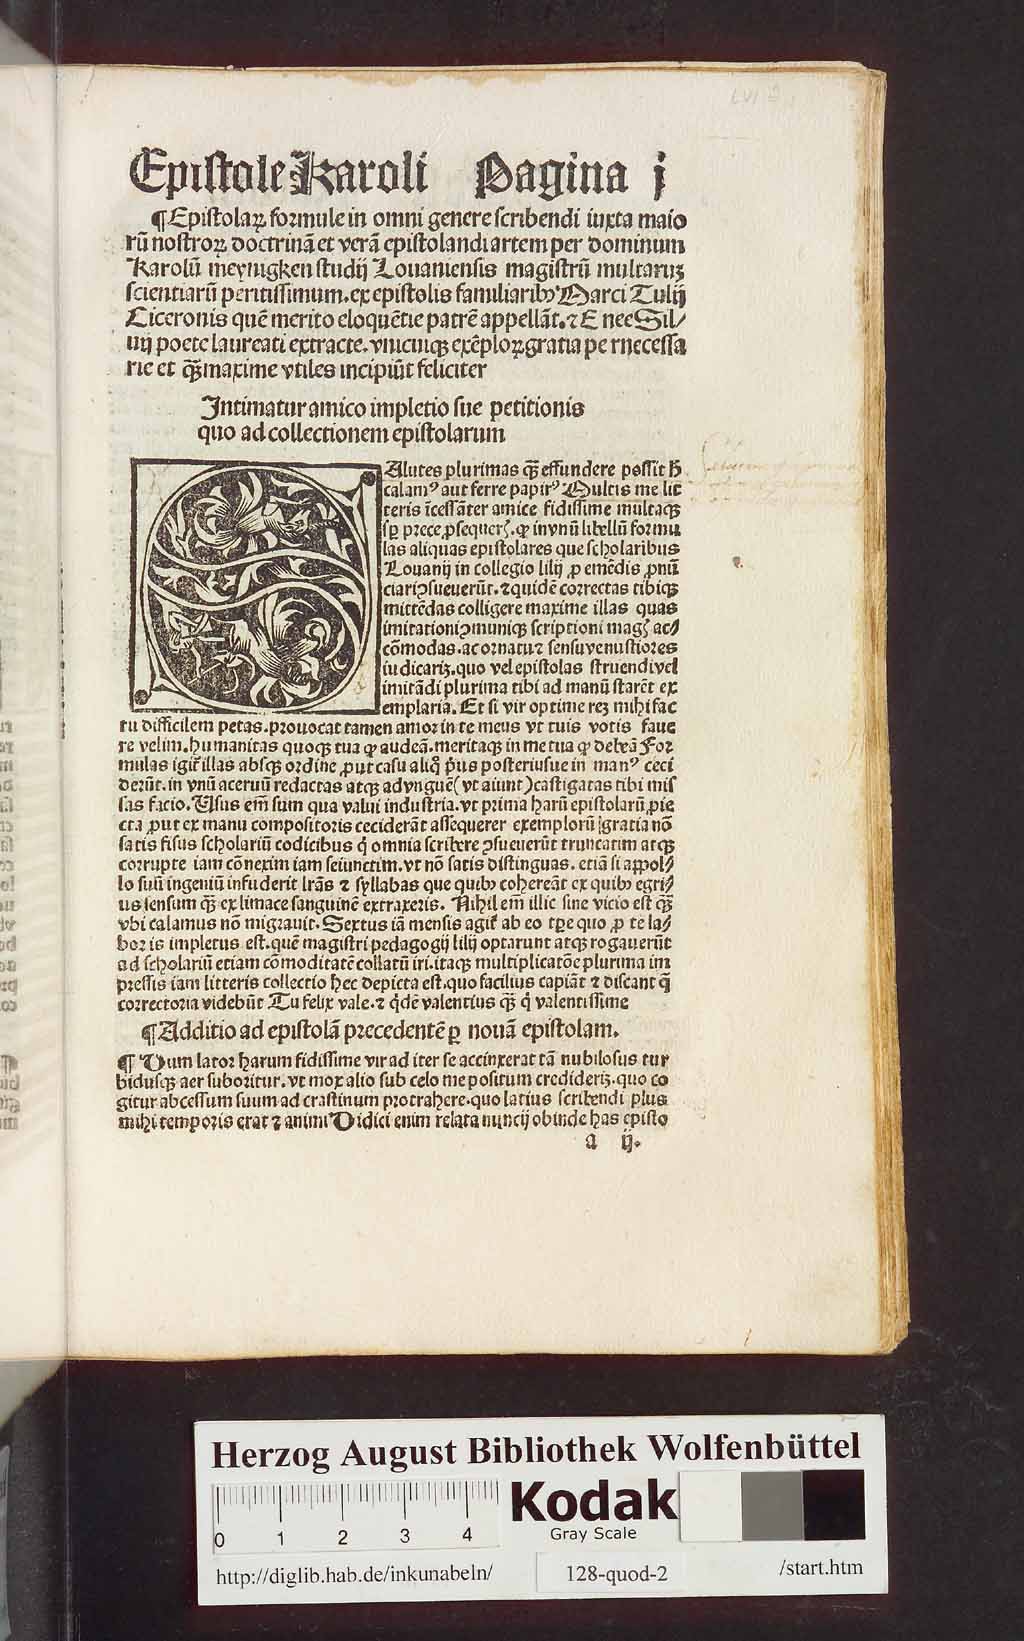 Epistole Karoli Pagina j
¶Epistolaꝝ formule in omni genere scribendi iuxta maio
rū nostroꝝ doctrinā et verā epistolandi artem per dominum
Karolū meynigken studij Louaniensis magistrū multaruꝫ
scientiarū peritissimum. ex epistolis familiaribꝰ Marci Tulij
Ciceronis quē merito eloquētie patrē appellāt. ⁊ E nee Sil⸗
uij poete laureati extracte. vnicuiqꝫ exēploꝝ gratia pe rnecessa
rie et qꝫ̄ maxime vtiles incipiūt feliciter
Intimatur amico impletio sue petitionis
quo ad collectionem epistolarum
SAlutes plurimas qꝫ̄ effundere possit h̄
calamꝰ aut ferre papirꝰ Multis me lit
teris īcessāter amice fidissime multaqꝫ
sꝑ prece ꝓsequerꝭ. ꝙ in vnū libellū formu
las aliquas epistolares que scholaribus
Louanij in collegio lilij ꝓ emēdis ꝓnū
ciari ꝯsueuerūt. ⁊ quidē correctas tibiqꝫ
mittēdas colligere maxime illas quas
imitationi ꝯmuniqꝫ scriptioni magꝭ ac⸗
cōmodas. ac ornatu ⁊ sensu venustiores
iudicariꝫ. quo vel epistolas struendi vel
imitādi plurima tibi ad manū starēt ex
emplaria. Et si vir optime reꝫ mihi fac
tu difficilem petas. prouocat tamen amor in te meus vt tuis votis faue
re velim. humanitas quoqꝫ tua ꝙ audeā. meritaqꝫ in me tua ꝙ debeā For
mulas igit illas absqꝫ ordine ꝓut casu aliq̄ pͥus posteriusue in manꝰ ceci
derūt. in vnū aceruū redactas atqꝫ ad vnguē (vt aiunt) castigatas tibi mis
sas facio. Usus em̄ sum qua valui industria. vt prima harū epistolarū ꝓie
cta ꝓut ex manu compositoris ceciderāt assequerer exemplorū gratia nō
satis fisus scholariū codicibus q̄ omnia scribere ꝯsueuerūt truncatim atqꝫ
corrupte iam cōnexim iam seiunctim. vt nō satis distinguas. etiā si appol⸗
lo suū ingeniū infuderit lr̄as ⁊ syllabas que quibꝰ cohereāt ex quibꝰ egri⸗
us sensum qꝫ̄ ex limace sanguinē extraxeris. Nihil em̄ illic sine vicio est qꝫ̄
vbi calamus nō migrauit. Sextus iā mensis agit ab eo tꝑe quo ꝓ te la⸗
bor is impletus est. quē magistri pedagogij lilij optarunt atqꝫ rogauerūt
ad scholariū etiam cōmoditatē collatū iri. itaqꝫ multiplicatōe plurima im
pressis iam litteris collectio hec depicta est. quo facilius capiāt ⁊ discant q̄
correctoria videbūt Tu felix vale. ⁊ q̇dē valentius qꝫ̄ q̇ valentissime
¶Additio ad epistolā precedentē ꝑ nouā epistolam.
¶ Dum lator harum fidissime vir ad iter se accinxerat tā nubilosus tur
bidusqꝫ aer suboritur. vt mox alio sub celo me positum credideriꝫ. quo co
gitur abcessum suum ad crastinum protrahere. quo latius scribendi plus
mihi temporis erat ⁊ animi Didici enim relata nuncij obinde has episto
a ij.
Herzog August Bibliothek Wolfenbüttel
Kodak
Gray Scale
0 1 2 3 4
http://diglib.hab.de/inkunabeln/ 128-quod-2 /start.htm